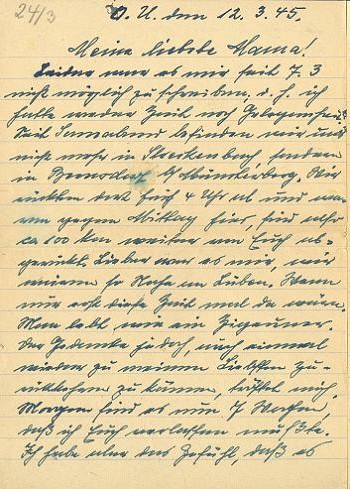 24/3
O. U. den 12. 3. 45.
Meine liebste Mama!
Leider war es mir seit 7. 3
nicht möglich zu schreiben, d. h. ich
hatte weder Zeit noch Gelegenheit.
Seit Sonnabend befinden wir uns
nicht mehr in Streckenbach, sondern
in b/ Münsterberg. Wir
rückten dort früh 4 Uhr ab und
waren gegen Mittag hier, sind mehr
ca 100 km weiter von Euch ab-
gerückt. Lieber war es mir, wir
wären so Nahe an Lüben. Wenn
nur erst diese Zeit mal da wäre.
Man lebt wie ein Zigeuner.
Der Gedanke jedoch, noch einmal
wieder zu meinen Liebsten zu-
rückkehren zu können, tröstet mich.
Morgen sind es nun 7 Wochen,
daß ich Euch verlassen mußte.
Ich habe aber das Gefühl, daß es